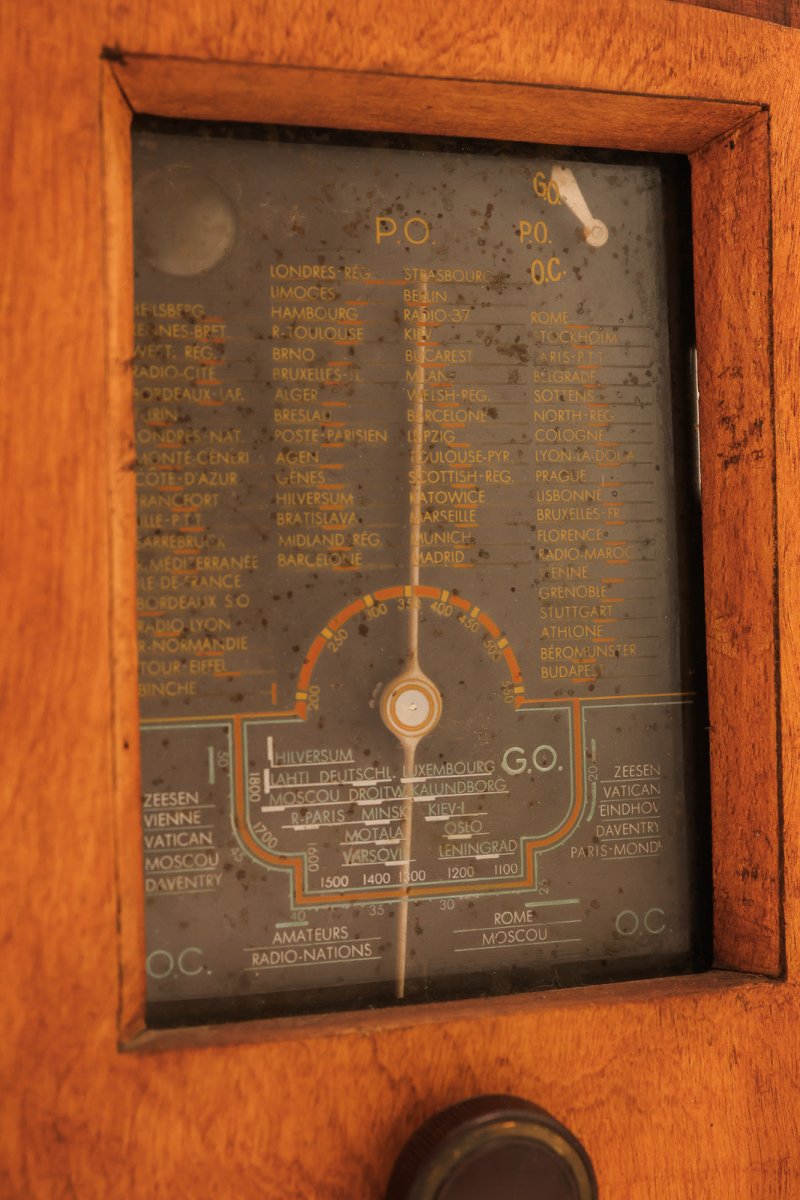 P.O.
G.O.
P.O.
O.C.
HEILSBERG
RENNES-BRET.
WEST. REG.
RADIO-CITÉ
BORDEAUX-LAF.
TURIN
LONDRES-NAT.
MONTE-CENERI
CÔTE-D'AZUR
FRANCFORT
LILLE-P.T.T.
SARREBRUCK
R.MEDITERRANÉE
ILE-DE-FRANCE
BORDEAUX S.O
RADIO-LYON
R-NORMANDIE
TOUR-EIFFEL
BINCHE
LONDRES-REG.
LIMOGES
HAMBOURG
R-TOULOUSE
BRNO
BRUXELLES-FL.
ALGER
BRESLAU
POSTE-PARISIEN
AGEN
GÊNES
HILVERSUM
BRATISLAVA
MIDLAND REG.
BARCELONE
STRASBOURG
BERLIN
RADIO-37
KIEV
BUCAREST
MILAN
WELSH-REG.
BARCELONE
LEIPZIG
TOULOUSE-PYR.
SCOTTISH-REG.
KATOWICE
MARSEILLE
MUNICH
MADRID
ROME
STOCKHOLM
PARIS-P.T.T
BELGRADE
SOTTENS
NORTH-REG.
COLOGNE
LYON-LA-DOUA
PRAGUE
LISBONNE
BRUXELLES-FR.
FLORENCE
RADIO-MAROC
VIENNE
GRENOBLE
STUTTGART
ATHLONE
BÉROMUNSTER
BUDAPEST
200 250 300 350 400 450 500 550
HILVERSUM
LAHTI DEUTSCHL. LUXEMBOURG
G.O.
MOSCOU DROITW. KALUNDBORG
R-PARIS MINSK KIEV-I
MOTALA OSLO
VARSOVIE LENINGRAD
1800 1700 1600 1500 1400 1300 1200 1100
50 45 40 35 30 25 20
ZEESEN
VIENNE
VATICAN
MOSCOU
DAVENTRY
O.C.
AMATEURS
RADIO-NATIONS
ROME
MOSCOU
ZEESEN
VATICAN
EINDHOV
DAVENTRY
PARIS-MONDL
O.C